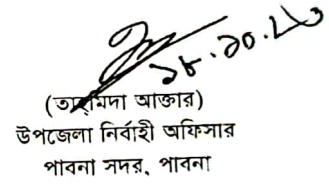 ১৮.১০.২৩
(তাহমিদা আক্তার)
উপজেলা নির্বাহী অফিসার
পাবনা সদর, পাবনা